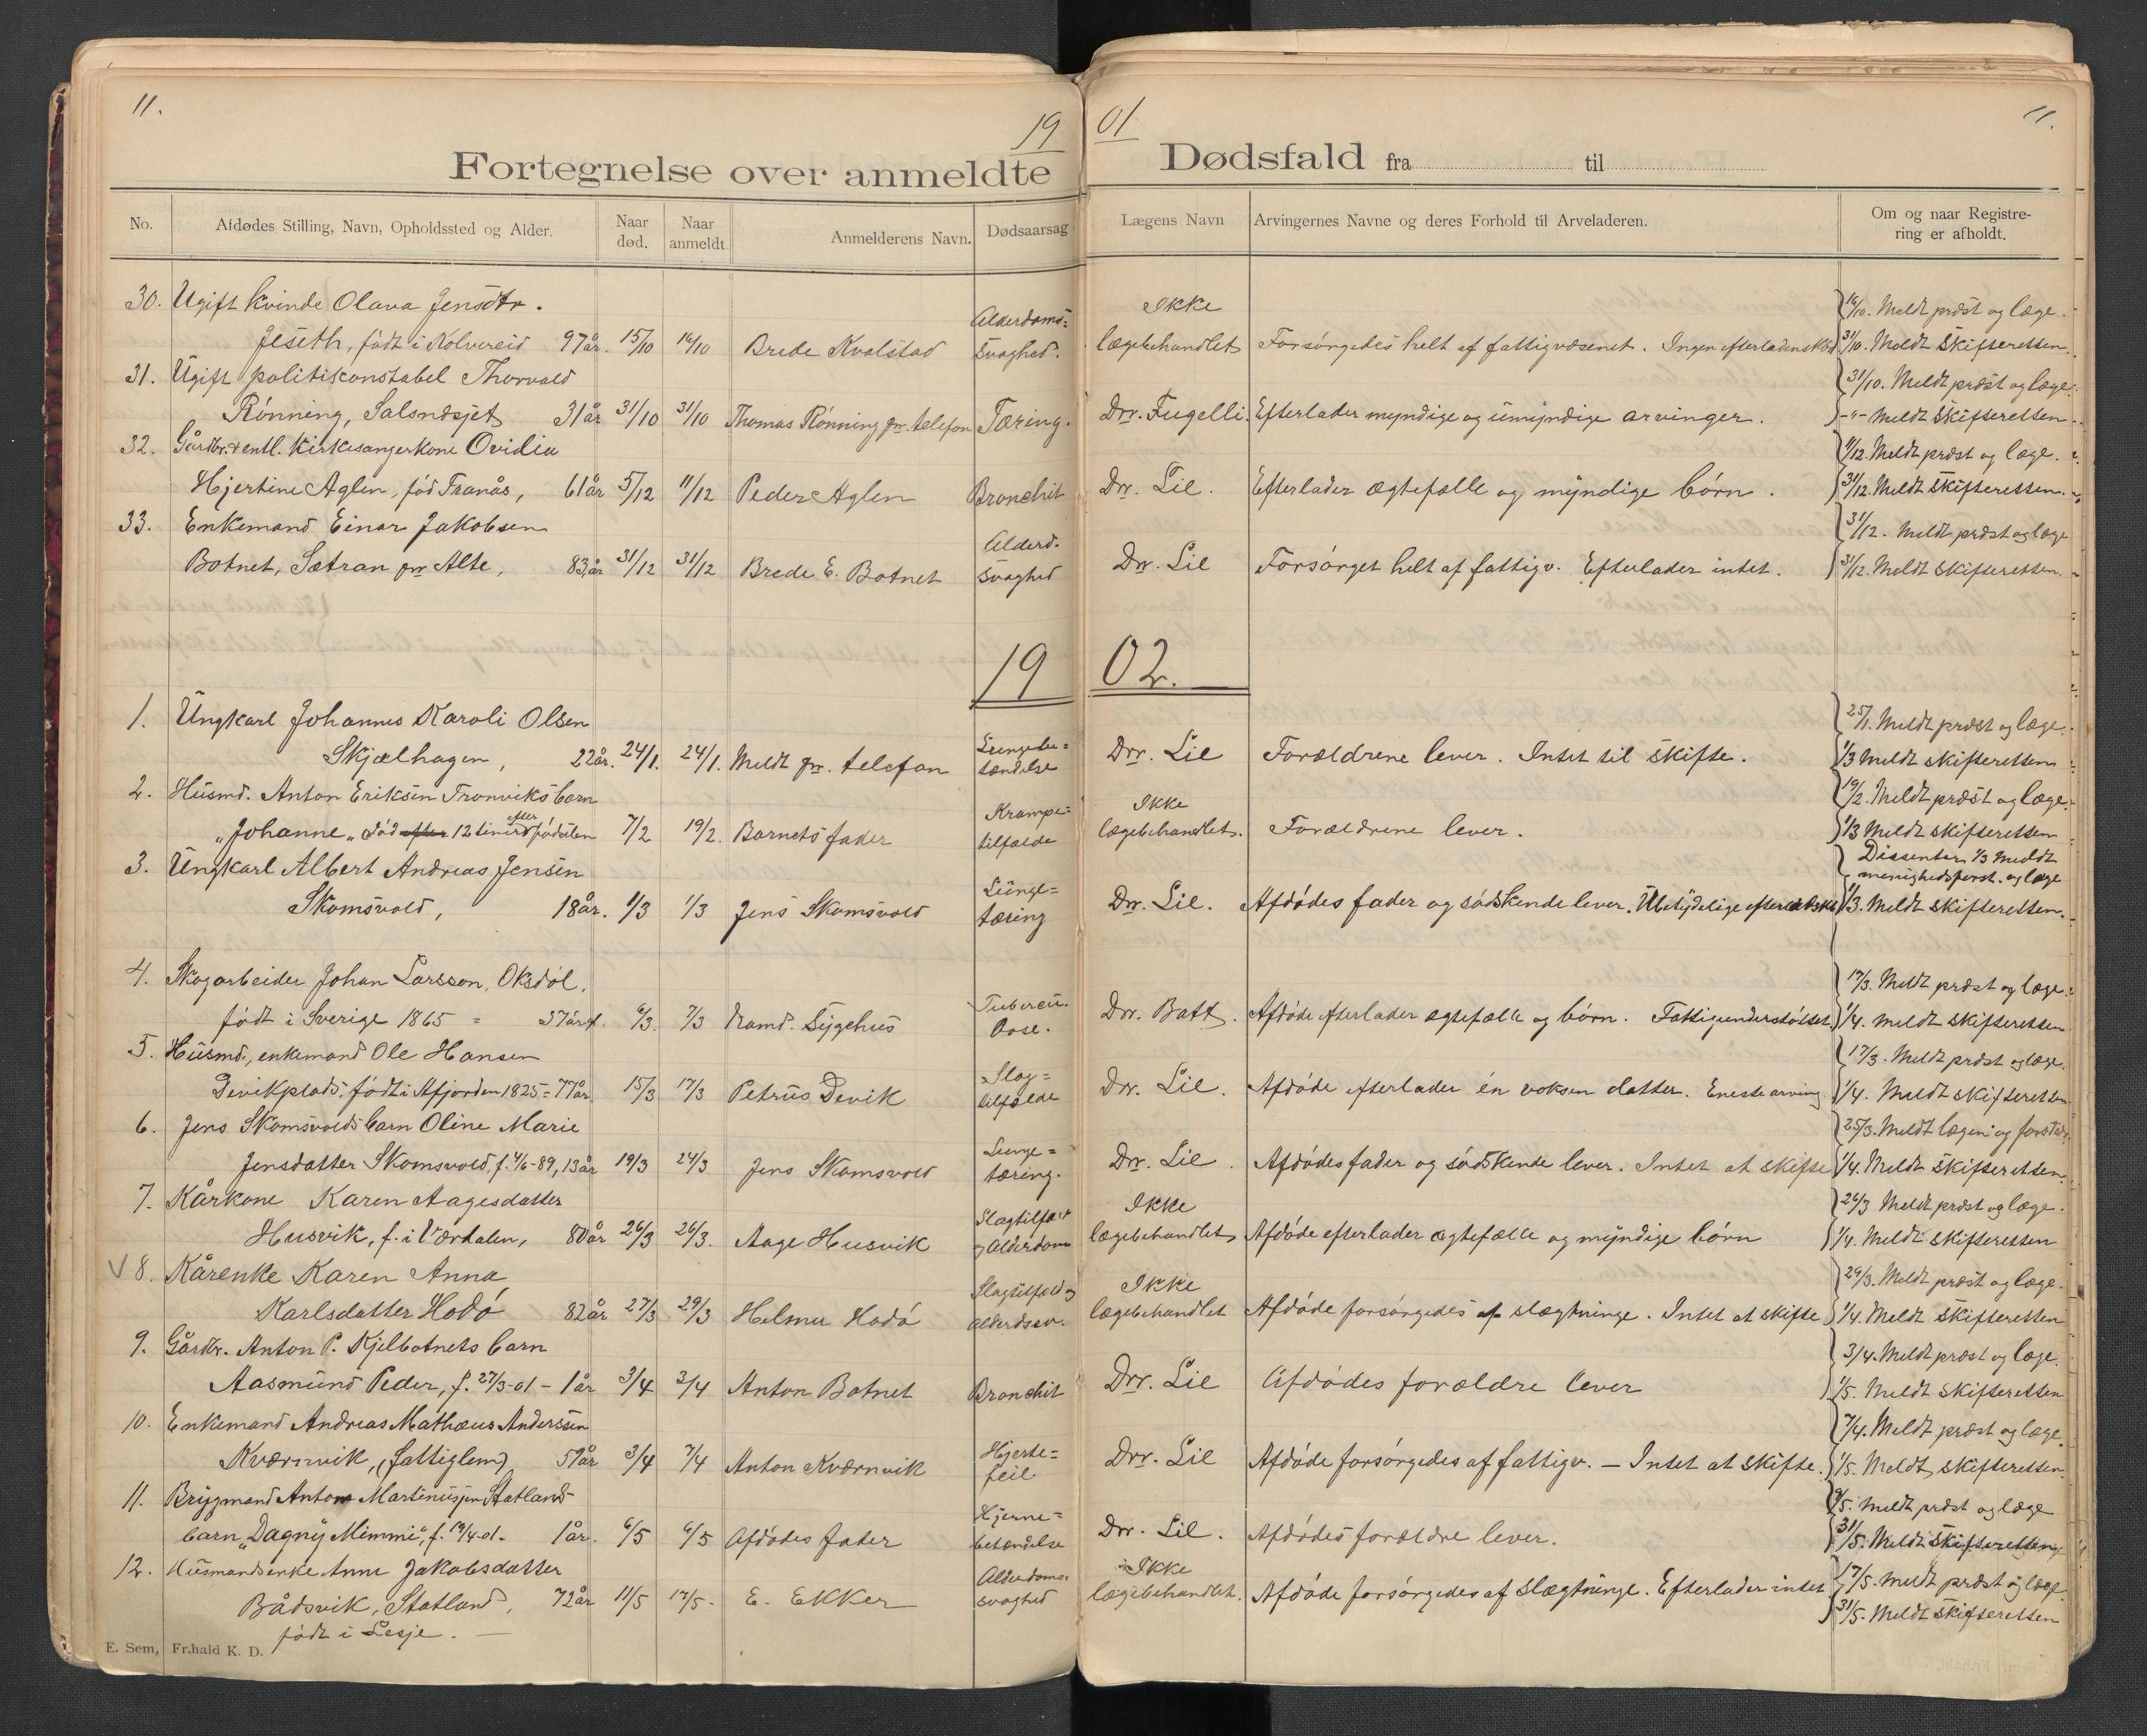 11.
19
01
11.
Fortegnelse over anmeldte
Dødsfald fra til
No.
Afdødes Stilling, Navn, Opholdssted og Alder.
Naar død.
Naar anmeldt.
Anmelderens Navn.
Dødsaarsag
Lægens Navn
Arvingernes Navne og deres Forhold til Arveladeren.
Om og naar Registre-
ring er afholdt.
30. Ugift kvinde Olava Jensdtr. Alderdoms= Ikke 16/10. Meldt præst og læge.
Jeseth, født i Kolvereid 97 år. 15/10 16/10 Brede Kvalstad svaghed. lægebehandlet Forsørgedes helt af fattigvæsenet. Ingen 31/10. Meldt skifteretten.
31. Ugift politikonstabel Thorvald 31/10. Meldt præst og læge.
Rønning, Salsnæsjet 31 år 31/10 31/10 Thomas Rønning pr. telefon Tæring. Dr. Fugelli. Efterlader myndige og umyndige arvinger. -"- Meldt skifteretten.
32. Gårdbr. & entl. kirkesangerkone Ovidia 11/12. Meldt præst og læge.
Hjertine Aglen, fød Tranås, 61 år 5/12 11/12 Peder Aglen Bronchit Dr. Lie. Efterlader ægtefælle og myndige børn. 31/12. Meldt skifteretten.
33. Enkemand Einar Jakobsen Alderd. 31/12. Meldt præst og læge
Botnet, Sætran pr Alte, 83 år 31/12 31/12 Brede E. Botnet svaghed Dr. Lie Forsørget helt af fattigv. Efterlader intet. 31/12. Meldt skifteretten.
19 02.
1. Ungkarl Johannes Karoli Olsen Lungebe= 25/1. Meldt præst og læge.
Skjælhagen, 22 år. 24/1. 24/1. Meldt pr. telefon tændelse Dr. Lie Forældrene lever. Intet til skifte. 1/3 Meldt skifteretten
2. Husmd. Anton Eriksen Tronviks barn Krampe= Ikke 19/2. Meldt præst og læge.
"Johanne" død efter 12 timer efter fødselen 7/2 19/2. Barnets fader tilfælde lægebehandlet. Forældrene lever. 1/3 Meldt skifteretten
3. Ungkarl Albert Andreas Jensen Lunge= Dissenter 1/3 Meldt
menighedsforst. og læge
Skomsvold, 18 år. 1/3 1/3 Jens Skomsvold tæring Dr. Lie. Afdødes fader og sødskende lever. Ubetydelige 1/3. Meldt skifteretten.
4. Skogarbeider Johan Larsson, Oksdøl, Tubercu. 17/3. Meldt præst og læge.
født i Sverige 1865 = 37 år. 6/3. 7/3 Namd. Sygehus lose. Dr. Batt. Afdøde efterlader ægtefælle og børn. Fattigunderstøttet. 1/4. Meldt skifteretten
5. Husmd., enkemand Ole Hansen Slag= 17/3. Meldt præst og læge.
Devikplads, født i Afjorden 1825 = 77 år. 15/3 17/3 Petrus Devik tilfælde Dr. Lie. Afdøde efterlader én voksen datter. Eneste arving 1/4. Meldt skifteretten
6. Jens Skomsvolds barn Oline Marie Lunge= 25/3. Meldt lægen og forst.
Jensdatter Skomsvold, f. 4/6-89, 13 år 19/3 24/3 Jens Skomsvold tæring. Dr. Lie. Afdødes fader og sødskende lever. Intet at skifte 1/4. Meldt skifteretten.
7. Kårkone Karen Aagesdatter Slagtilfæld Ikke 26/3 Meldt præst og læge.
Husvik, f. i Værdalen, 80 år 26/3 26/3. Aage Husvik og Alderdom lægebehandlet Afdøde efterlader ægtefælle og myndige børn 1/4. Meldt skifteretten
V 8. Kårenke Karen Anna Slagtilfæld og Ikke 29/3. Meldt præst og læge.
Karlsdatter Hodø 82 år 27/3 29/3 Helmer Hodø alderdssv. lægebehandlet Afdøde forsørgedes af slægtninge. Intet at skifte 1/4. Meldt skifteretten
9. Gårdbr. Anton P. Kjelbotnets barn 3/4. Meldt præst og læge.
Aasmund Peder, f. 27/3-01 - 1 år 3/4 3/4 Anton Botnet Bronchit Dr. Lie Afdødes forældre lever 1/5. Meldt skifteretten
10. Enkemand Andreas Mathæus Anderssen Hjerte= 7/4. Meldt præst og læge.
Kværnvik, (fattiglem), 59 år 3/4 7/4 Anton Kværnvik feil Dr. Lie Afdøde forsørgedes af fattigv. — Intet at skifte. 1/5. Meldt skifteretten.
11. Brygmand Anton Martinussen Statland Hjerne= 9/5. Meldt præst og læge
barn "Dagny Mimmi", f. 19/4-01. 1 år. 6/5 6/5 Afdødes fader betændelse Dr. Lie. Afdødes forældre lever. 31/5. Meldt skifteretten
12. Husmandsenke Anne Jakobsdatter Alderdoms= Ikke 17/5. Meldt præst og læge.
Bådsvik, Statland, 72 år 11/5 17/5. E. Ekker svaghed lægebehandlet. Afdøde forsørgedes af slægtninge. Efterlader intet 31/5. Meldt skifteretten
født i Lesje. —
E. Sem, Fr.hald K. D.